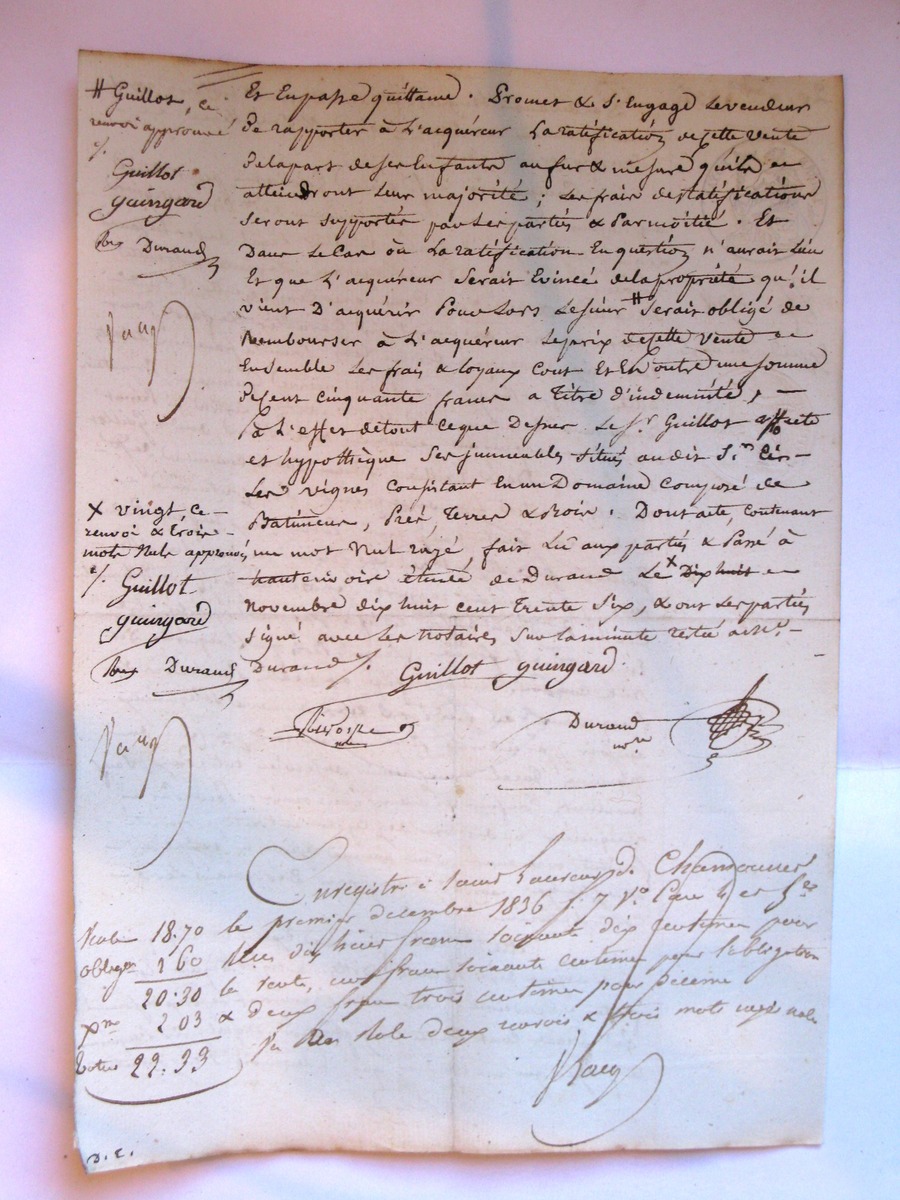 # Guillot, ce
renvoi approuvé
%
Guillot
guingard
Durand
Et En passe quittance. Promet & S'Engage Le vendeur
De rapporter à L'acquéreur La ratification de cette Vente
De la part de ses Enfants au fur & mesure qu'ils
atteindront leur majorité; Les frais des ratifications
Seront supportés par Les parties & Par moitié. Et
Dans Le Cas où La ratification En question n'aurait Lieu
Et que L'acquéreur Serait Evincé de la propriété qu'il
vient D'acquérir Pour Lors Le sieur # Serait obligé de
Rembourser à L'acquéreur Le prix de cette Vente
Ensemble Les frais & loyaux Cout Et En outre une somme
De Cent cinquante francs a Titre d'indemnité, —
à L'effet de tout Ce que Dessus Le Sr. Guillot affecte
et hypothèque Ses immeubles Situés au dit St. Cir-
Les vignes Consistant En un Domaine Composé de
Batimens, Prés, Terres & Bois. Dont acte, Contenant
un mot Nul rayé, fait Lu aux parties & Passé à
hauterivoire étude de Durand Le x Dix huit
Novembre dix huit cent Trente Six, & ont Les parties
Signé avec Les notaires Sur la minute restée à Me. -
Durand %.
x vingt, ce -
renvoi & Trois -
mots Nuls approuvés
%
Guillot
guingard
Durand
Guillot guingard
Durand
nre
Enregistré à Saint Laurent de Chamousset
le premier décembre 1836 f. 7 Vo. Case
dix huit francs soixante dix centimes pour
la vente, un franc soixante centimes pour l'obligation
& deux francs trois centimes pour décime
deux renvois & trois mots rayés nuls
Vente 18.70
obligon 1 60
20.30
Xme 2 03
Total 22.33
D. E.